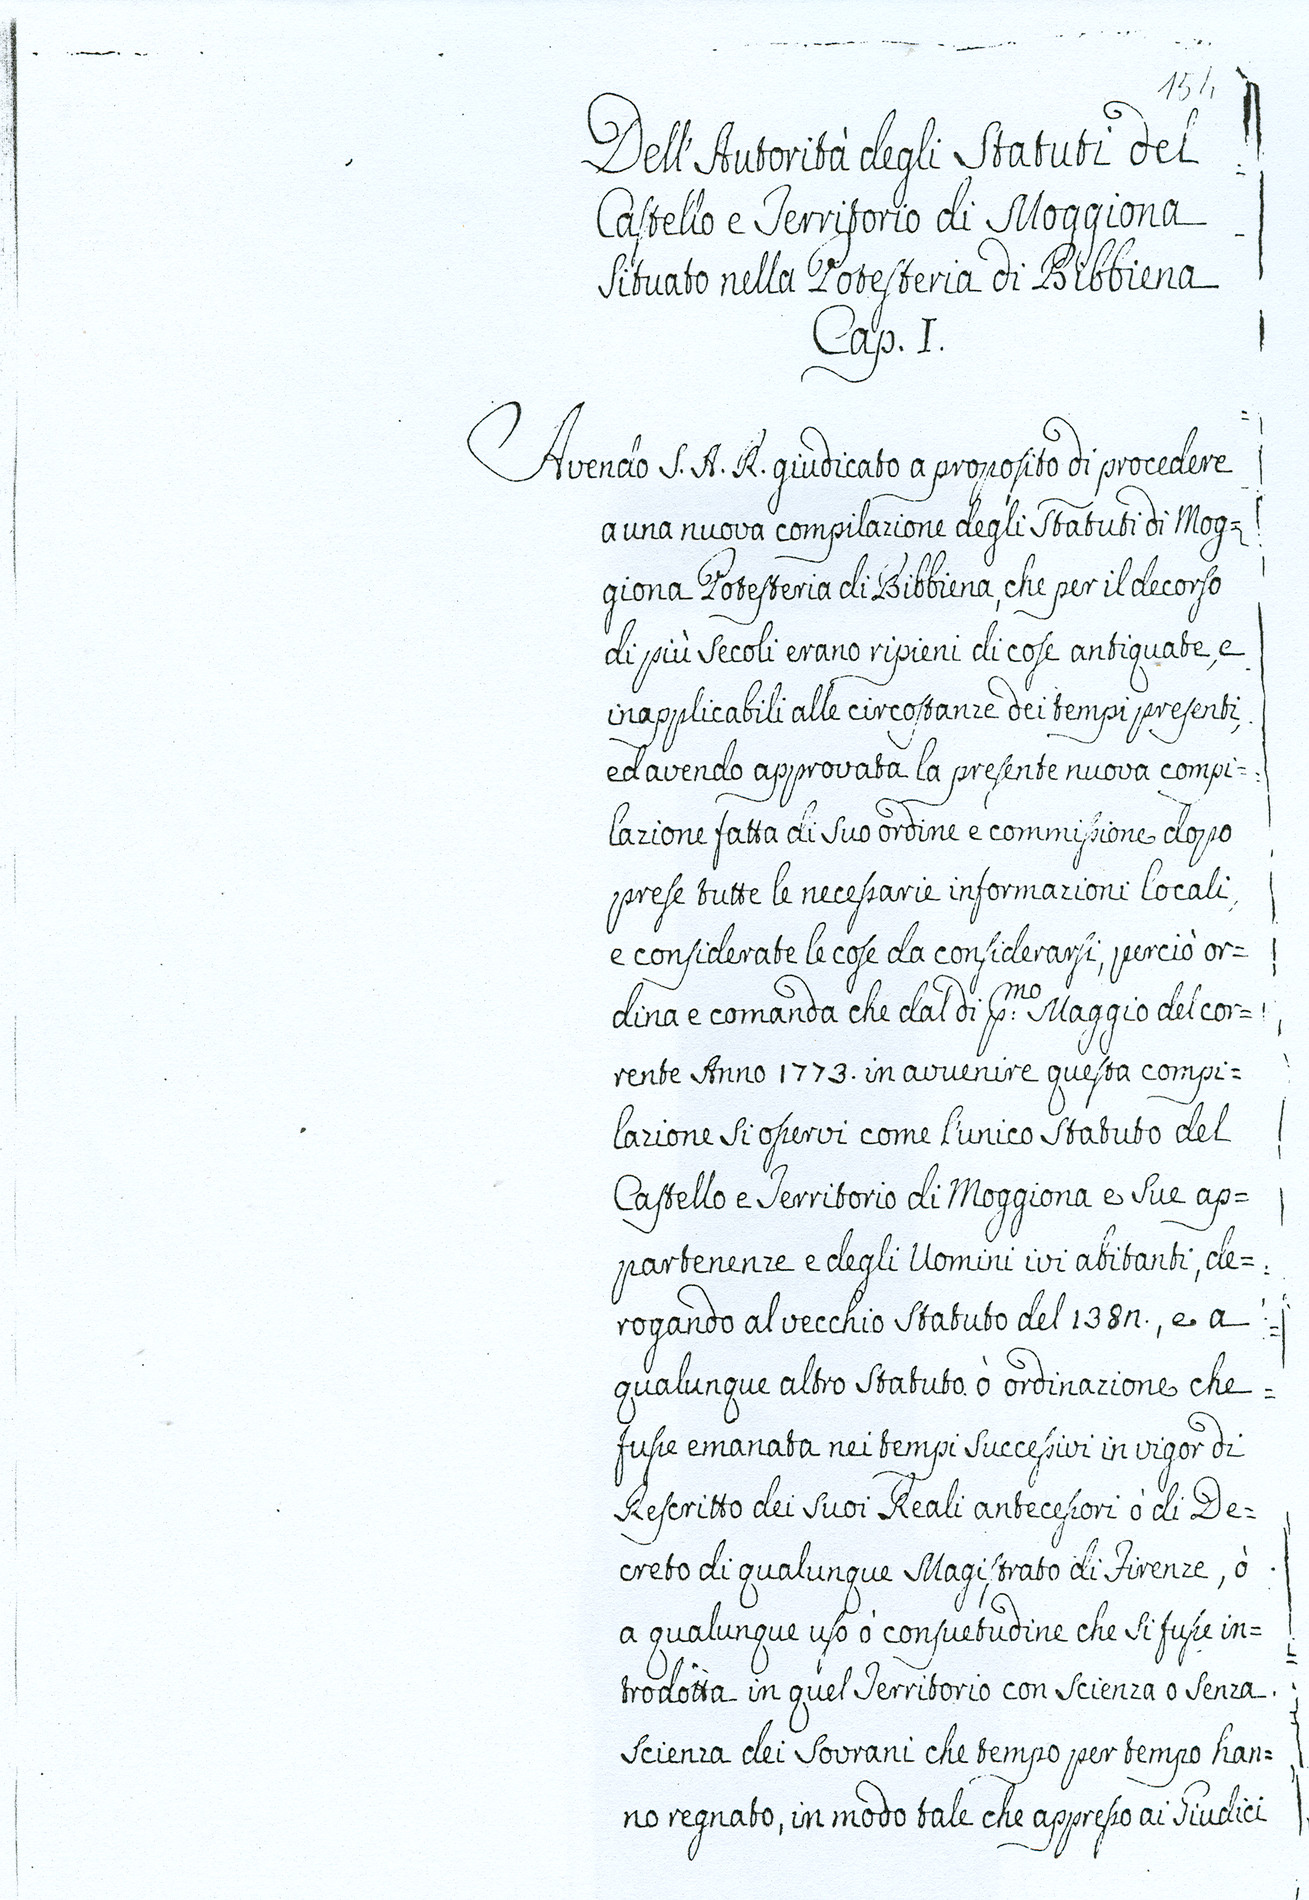 154
Dell' Autorità degli Statuti del
Castello e Territorio di Moggiona
Situato nella Potesteria di Bibbiena
Cap. I.
Avendo S. A. R. giudicato a proposito di procedere
a una nuova compilazione degli Statuti di Mog=
giona Potesteria di Bibbiena, che per il decorso
di più Secoli erano ripieni di cose antiquate, e
inapplicabili alle circostanze dei tempi presenti,
ed avendo approvata la presente nuova compi=
lazione fatta di Suo ordine e commissione dopo
prese tutte le necessarie informazioni locali,
e considerate le cose da considerarsi, perciò or=
dina e comanda che dal di p.mo Maggio del cor=
rente Anno 1773. in avvenire questa compi=
lazione Si osservi come l'unico Statuto del
Castello e Territorio di Moggiona e Sue ap=
partenenze e degli Uomini ivi abitanti, de=
rogando al vecchio Statuto del 138n., e a
qualunque altro Statuto ò ordinazione che
fusse emanata nei tempi Successivi in vigor di
Rescritto dei Suoi Reali antecessori ò di De=
creto di qualunque Magistrato di Firenze, ò
a qualunque uso ò consuetudine che Si fusse in=
trodotta in quel Territorio con Scienza o Senza
Scienza dei Sovrani che tempo per tempo han=
no regnato, in modo tale che appresso ai Giudici